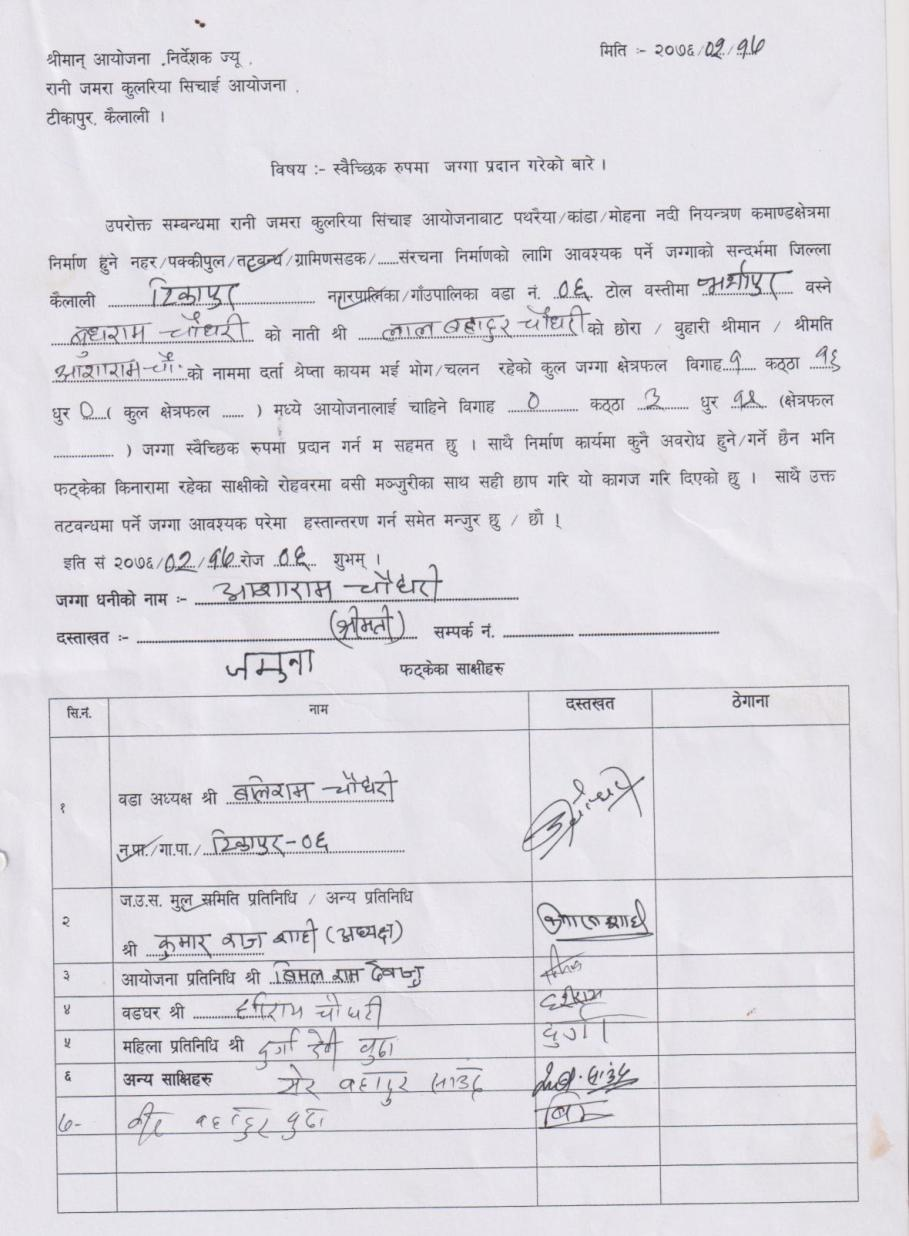 श्रीमान् आयोजना .निर्देशक ज्यू .
मिति :- २०७६/02/१७
रानी जमरा कुलरिया सिचाई आयोजना .
टीकापुर, कैलाली ।
विषय :- स्वैच्छिक रुपमा जग्गा प्रदान गरेको बारे ।
उपरोक्त सम्बन्धमा रानी जमरा कुलरिया सिंचाइ आयोजनावाट पथरैया/कांडा/मोहना नदी नियन्त्रण कमाण्डक्षेत्रमा
निर्माण हुने नहर/पक्कीपुल/तटवन्ध/ग्रामिणसडक/......संरचना निर्माणको लागि आवश्यक पर्ने जग्गाको सन्दर्भमा जिल्ला
कैलाली टिकापुर नगरपालिका/गाँउपालिका वडा नं. ०६ टोल वस्तीमा वस्ने
बुधराम चौधरी को नाती श्री लाल बहादुर चौधरी को छोरा / वुहारी श्रीमान / श्रीमति
आशाराम चौ. को नाममा दर्ता श्रेप्ता कायम भई भोग/चलन रहेको कुल जग्गा क्षेत्रफल विगाह १ कठ्ठा १६
धुर 0 ( कुल क्षेत्रफल ...... ) मध्ये आयोजनालाई चाहिने विगाह 0 कठ्ठा ३ धुर (क्षेत्रफल
.................. ) जग्गा स्वैच्छिक रुपमा प्रदान गर्न म सहमत छु । साथै निर्माण कार्यमा कुनै अवरोध हुने/गर्ने छैन भनि
फट्केका किनारामा रहेका साक्षीको रोहवरमा वसी मञ्जुरीका साथ सही छाप गरि यो कागज गरि दिएको छु । साथै उक्त
तटवन्धमा पर्ने जग्गा आवश्यक परेमा हस्तान्तरण गर्न समेत मन्जुर छु / छौ ।
इति सं २०७६/02/१७ रोज ०६ शुभम् ।
जग्गा धनीको नाम :- आशाराम चौधरी
दस्ताखत :- (श्रीमती) सम्पर्क नं. ....................................
जमुना फट्केका साक्षीहरु
सि.नं. नाम दस्तखत ठेगाना
१ वडा अध्यक्ष श्री बलिराम चौधरी
न.पा./गा.पा./ टिकापुर-०६
२ ज.उ.स. मुल समिति प्रतिनिधि / अन्य प्रतिनिधि
श्री कुमार राज शाही (अध्यक्ष)
३ आयोजना प्रतिनिधि श्री बिमल राम
४ वडघर श्री चौधरी
५ महिला प्रतिनिधि श्री दुर्गा देवी वुढा दुर्गा
६ अन्य साक्षिहरु सेर वहादुर साउद
७- वीर वहादुर वुढा